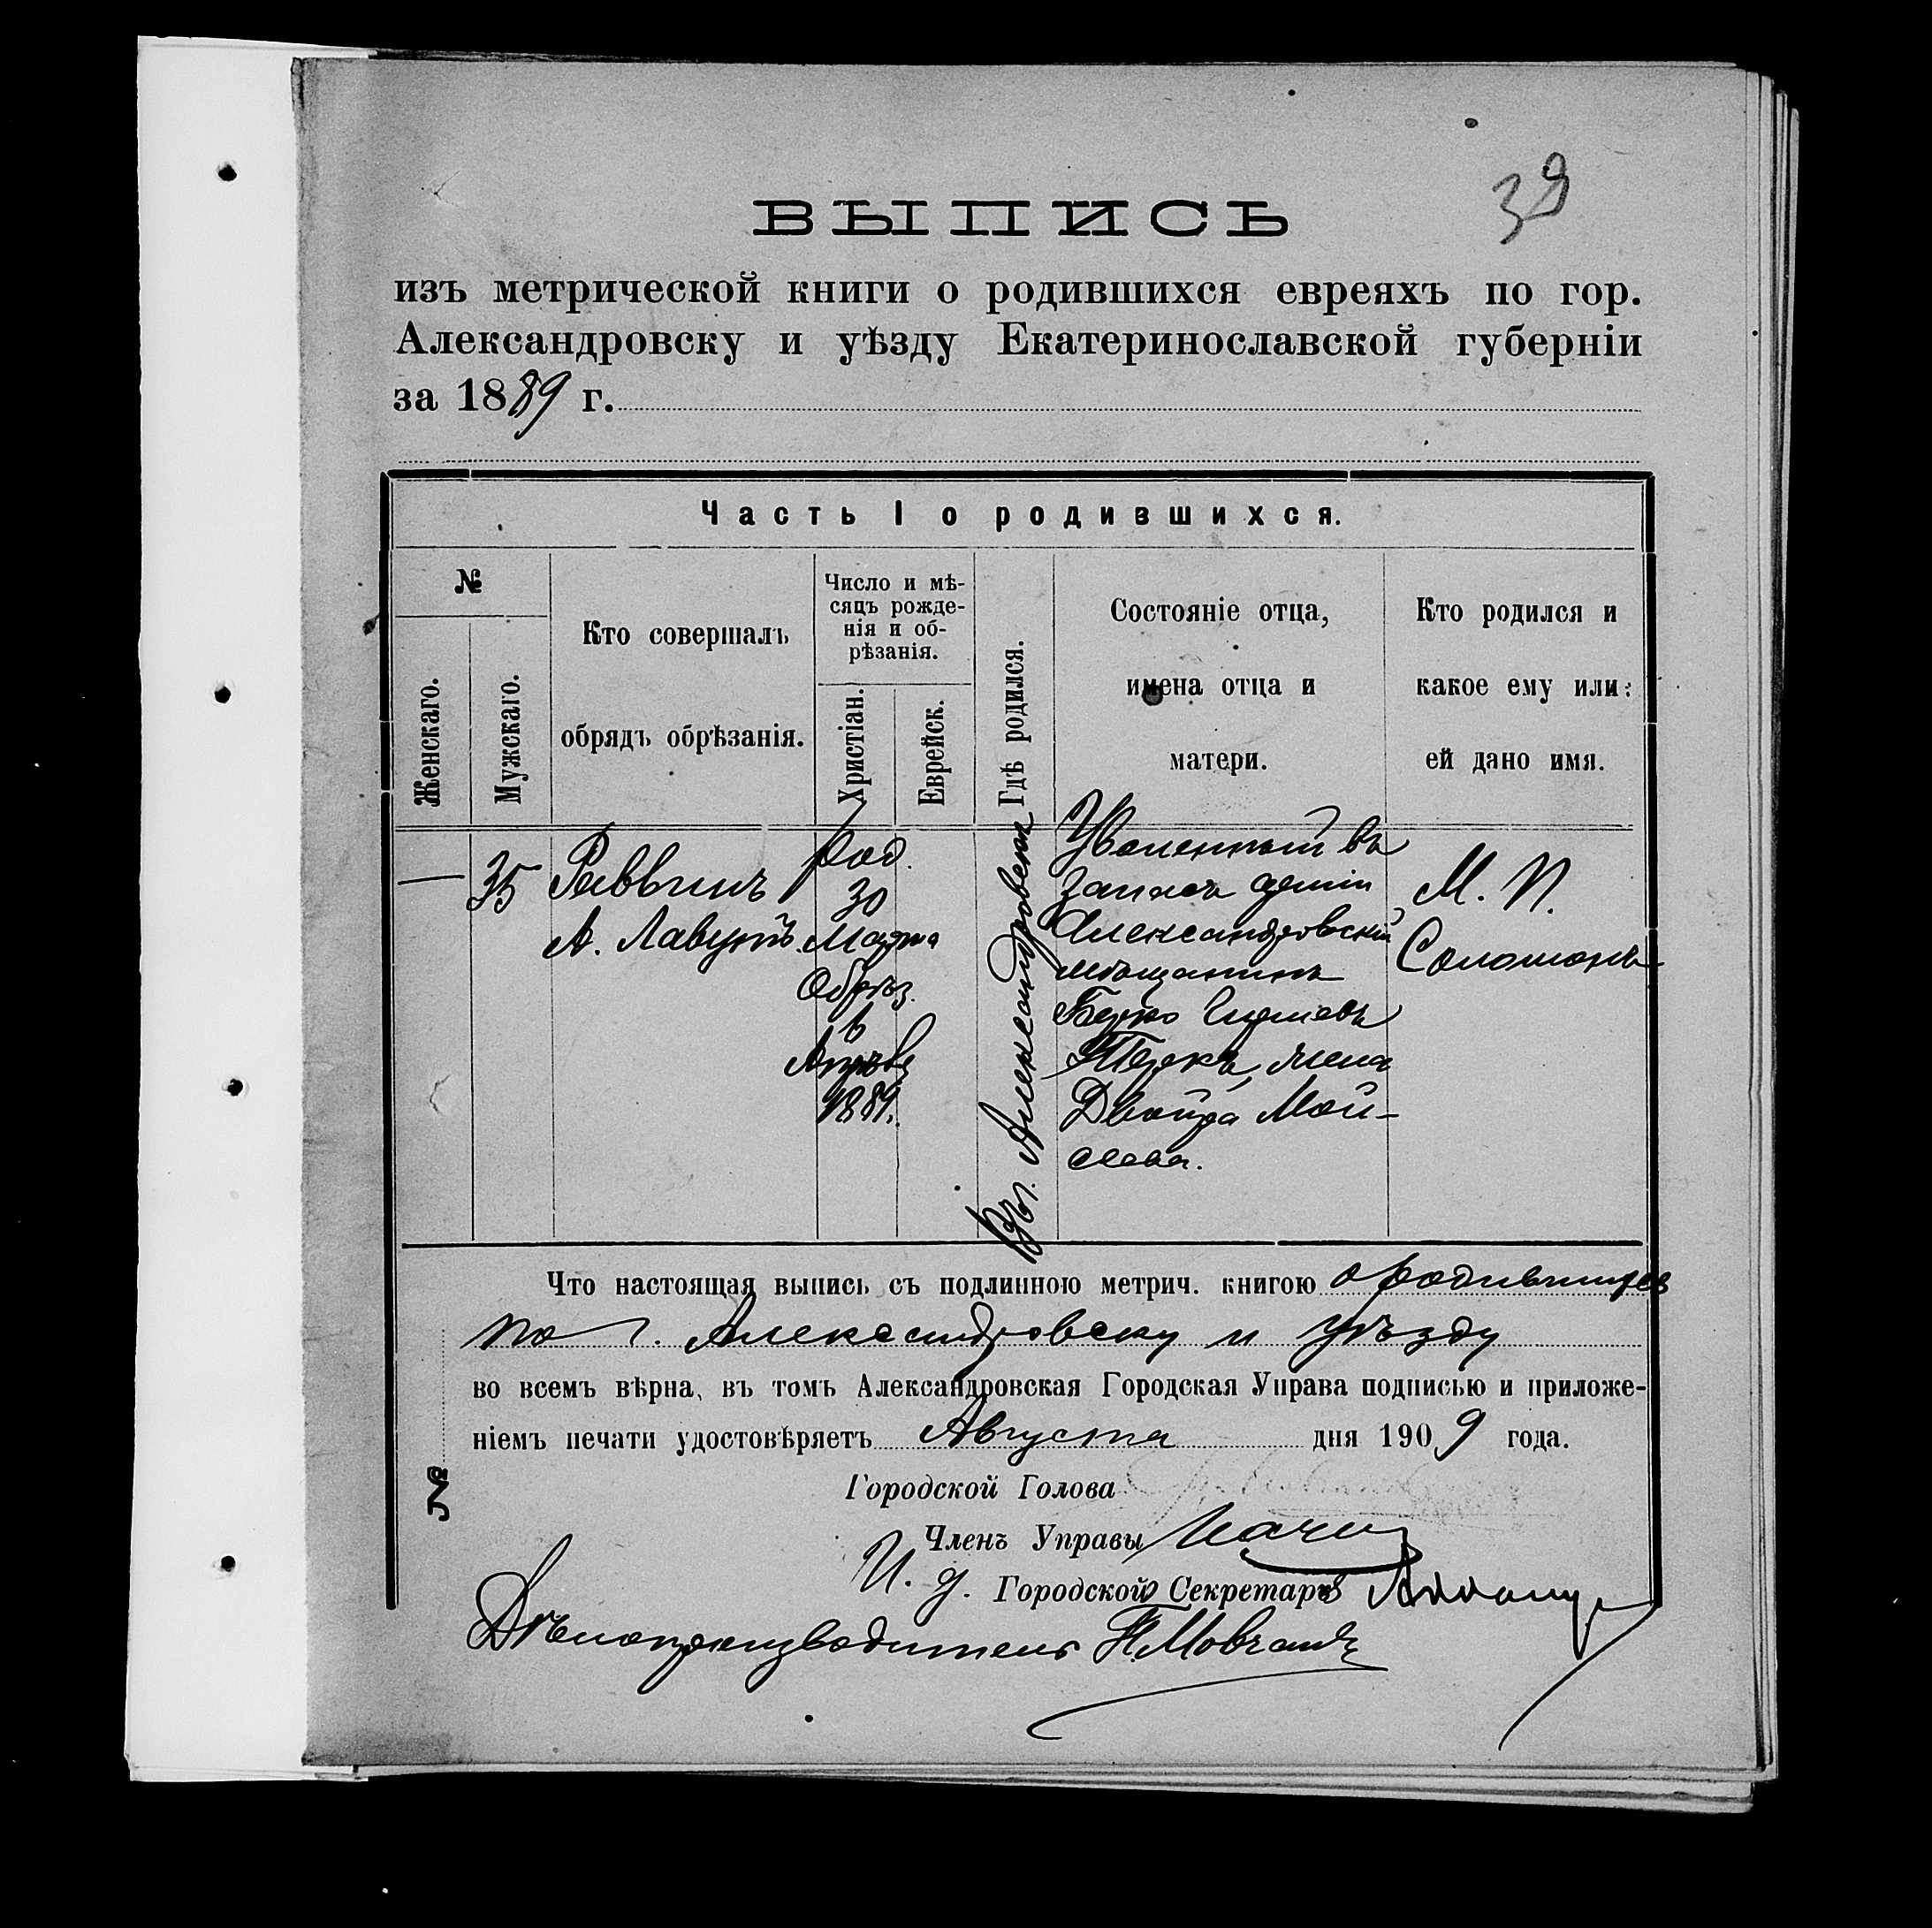 39
ВЫПИСЬ
изъ метрической книги о родившихся евреяхъ по гор.
Александровску и уѣзду Екатеринославской губерніи
за 1889 г.
Часть I о родившихся.
№
Женскаго.
Мужскаго.
Кто совершалъ
обрядъ обрѣзанія.
Число и мѣ-
сяцъ рожде-
нія и об-
рѣзанія.
Христіан.
Еврейск.
Гдѣ родился.
Состояніе отца,
имена отца и
матери.
Кто родился и
какое ему или
ей дано имя.
—
35
Раввинъ
А. Лавутъ.
род.
30
Марта
Обрѣз.
6
Апрѣля
1889.
Въ г. Александровскѣ
Уволенный въ
запасъ арміи
Александровскій
мѣщанинъ
Берко
жена
Двойра Мой-
сеева.
М. П.
Соломонъ
Что настоящая выпись съ подлинною метрич. книгою о родившихся
по г. Александровску и уѣзду
во всемъ вѣрна, въ томъ Александровская Городская Управа подписью и приложе-
ніемъ печати удостовѣряетъ Августа дня 1909 года.
№
Городской Голова
Членъ Управы
И. д. Городской Секретарь
Дѣлопроизводитель Н. Мовчанъ